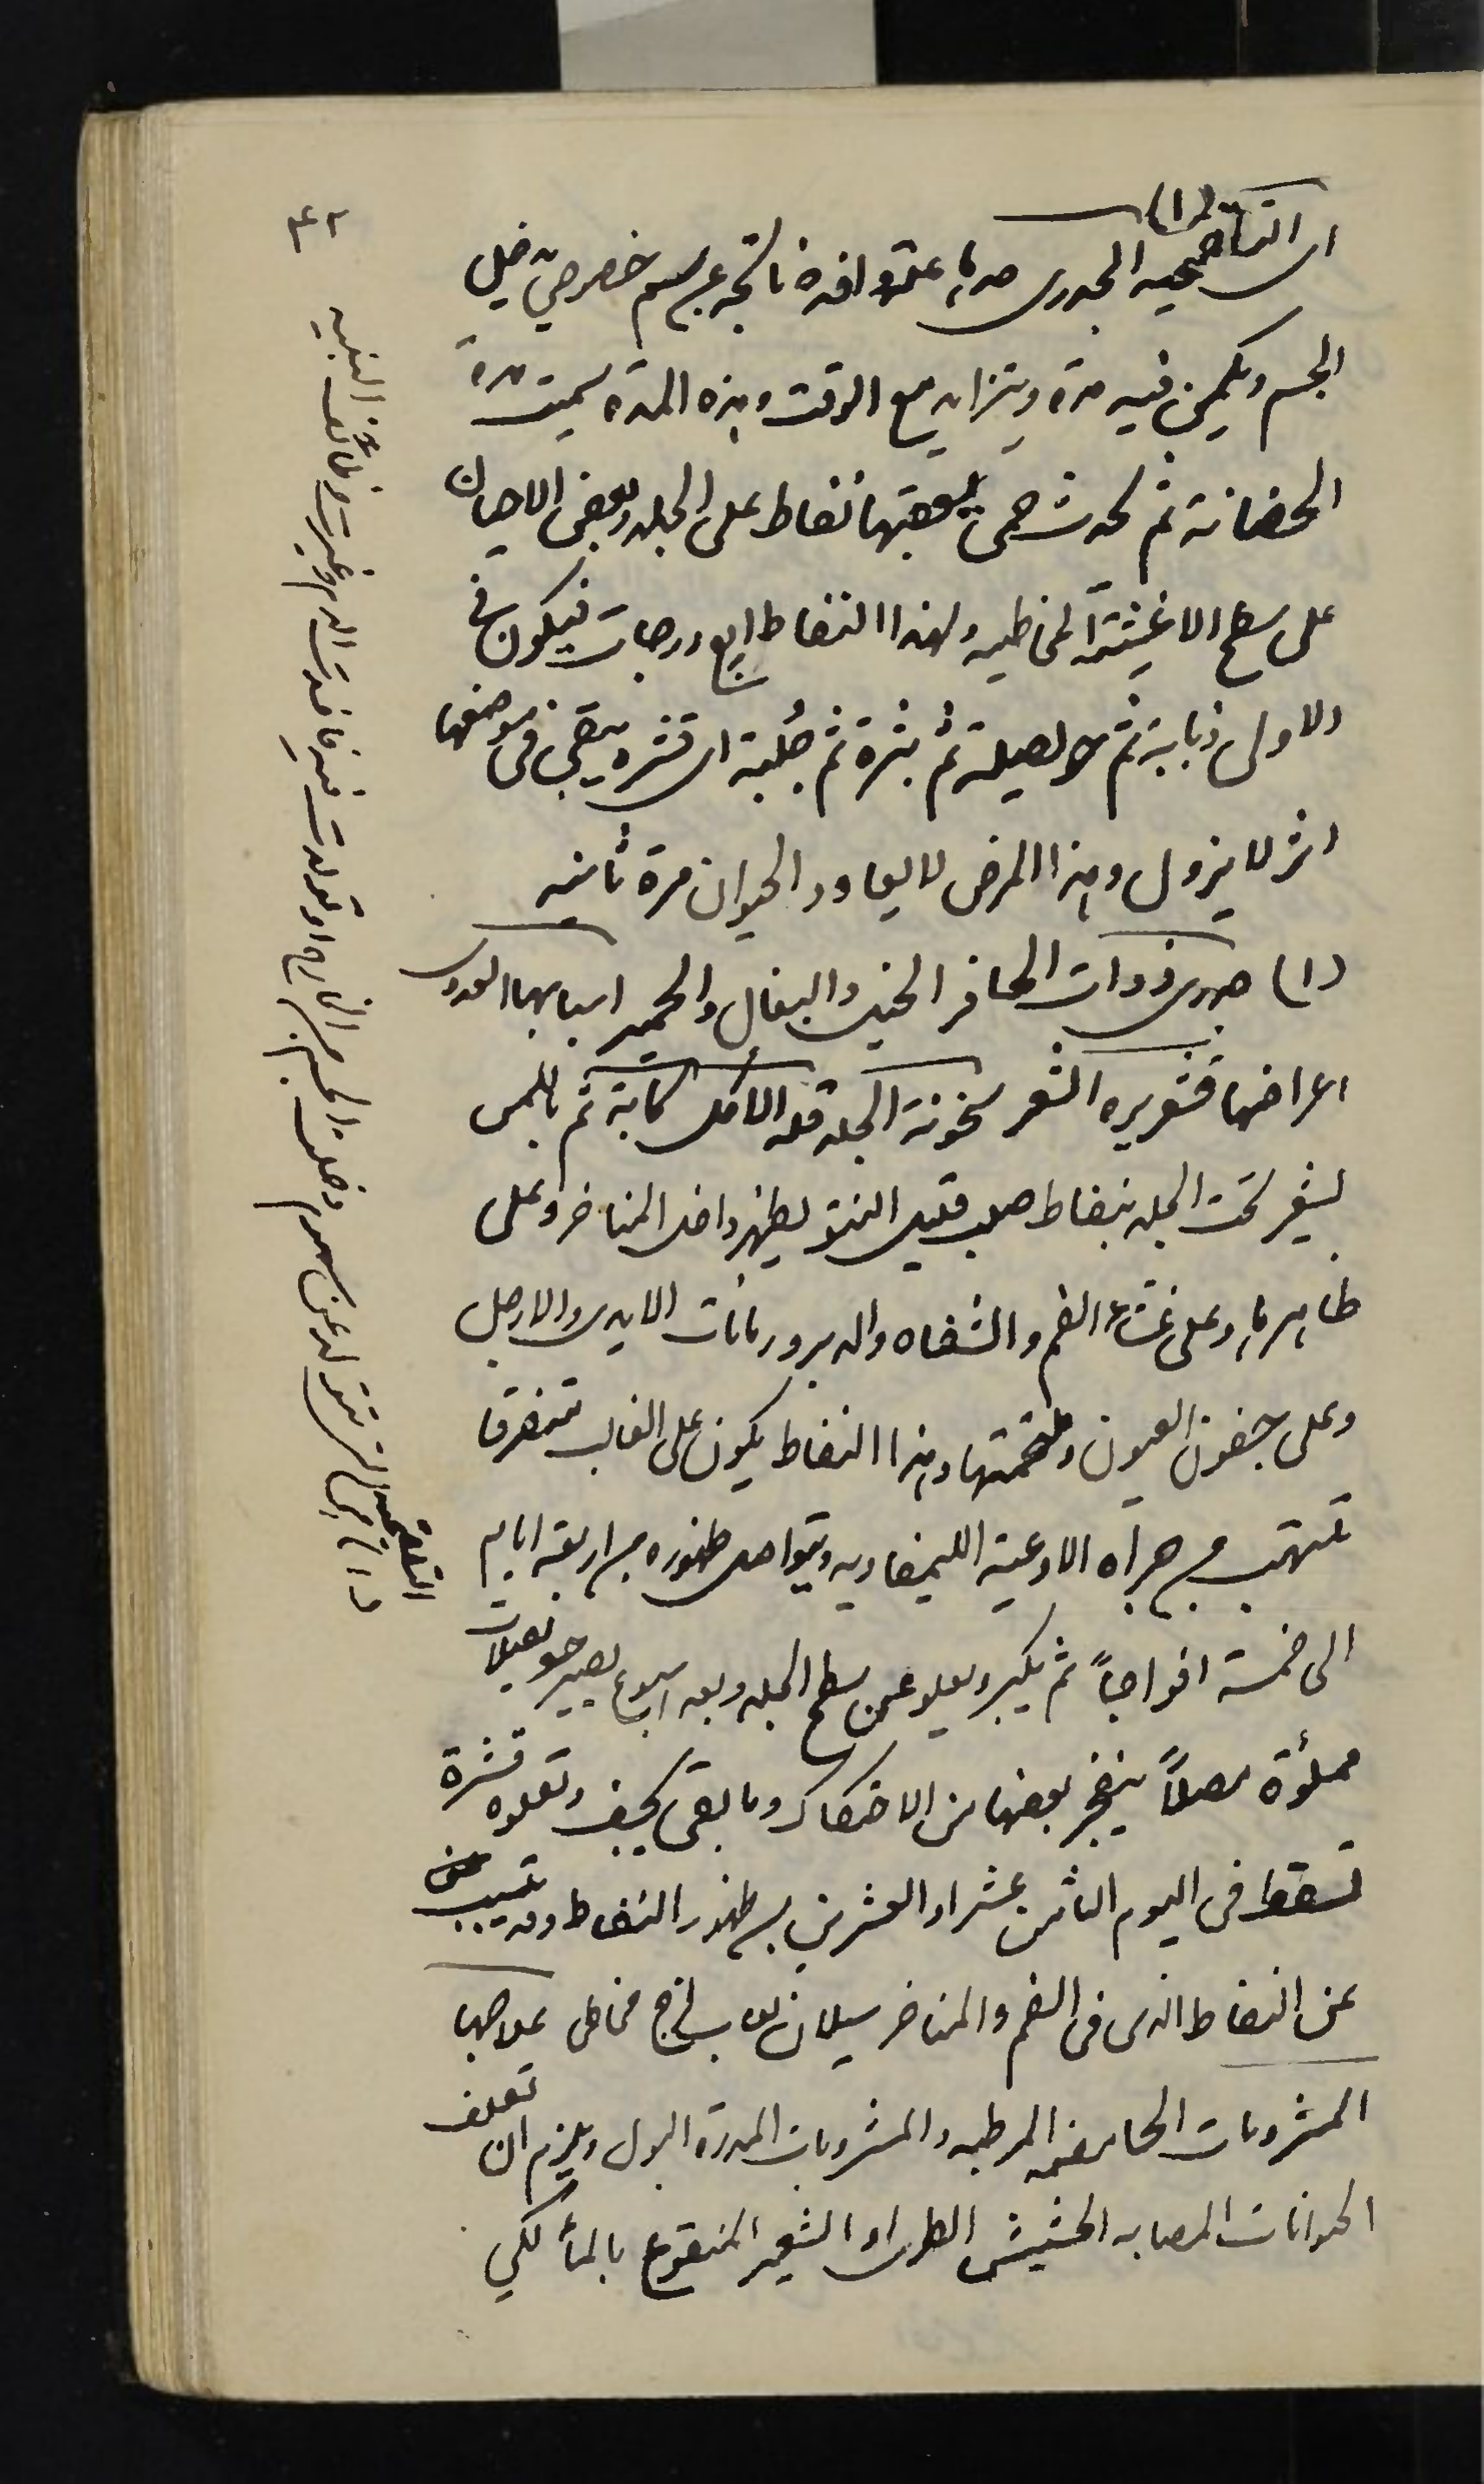 (١)
ان التلقحيه الجدرى هو علة وافدة ناتجه عن سم خصوصي يدخل
الجسم ويكمن فيه مدة ويتزايد مع الوقت وهذه المدة سميت مدة
الحضانة ثم تحدث حمى يعقبها نفاط على الجلد وبعض الاحيان
على سطح الاغشية المخاطيه ولهذا النفاط اربع درجات فيكون في
الاولى ذبابية ثم حويصلة ثم بثرة ثم جُلبة اى قشره يبقى فى موضعها
اثر لا يزول وهذا المرض لا يعاود الحيوان مرة ثانيه
(١) جدرى ذوات الحافر الخيل والبغال والحمير اسبابها العدوى
اعراضها قشعريره الشعر سخونة الجلد قلة الاكل كآبة ثم باللمس
يشعر تحت الجلد بنفاط صلب قليل النتو يظهر داخل المناخر وعلى
ظاهرها وعلى غشاء الفم والشفاه والدبر ورمانات الايدى والارجل
وعلى جفون العيون وملتحمتها وهذا النفاط يكون على الغالب متفرقا
تلتهب من جراه الاوعية الليمفاويه ويتواصل ظهوره من اربعة ايام
الى خمسة افواجاً ثم يكبر ويعلو عن سطح الجلد وبعد اسبوع يصير حويصلات
مملؤة مصلاً ينفجر بعضها من الاحتكاك وما بقى يجف وتعلوه قشرة
تسقط فى اليوم الثامن عشر او العشرين من ظهور النفاط وقد يتسبب
عن النفاط الذى فى الفم والمناخر سيلان لعاب لزج مخاطى علاجها
المشروبات الحامضه المرطبه والمشروبات المدرة البول ويلزم ان تعلف
الحيوانات المصابه الحشيش الطرى او الشعير المنقوع بالمأ لكي